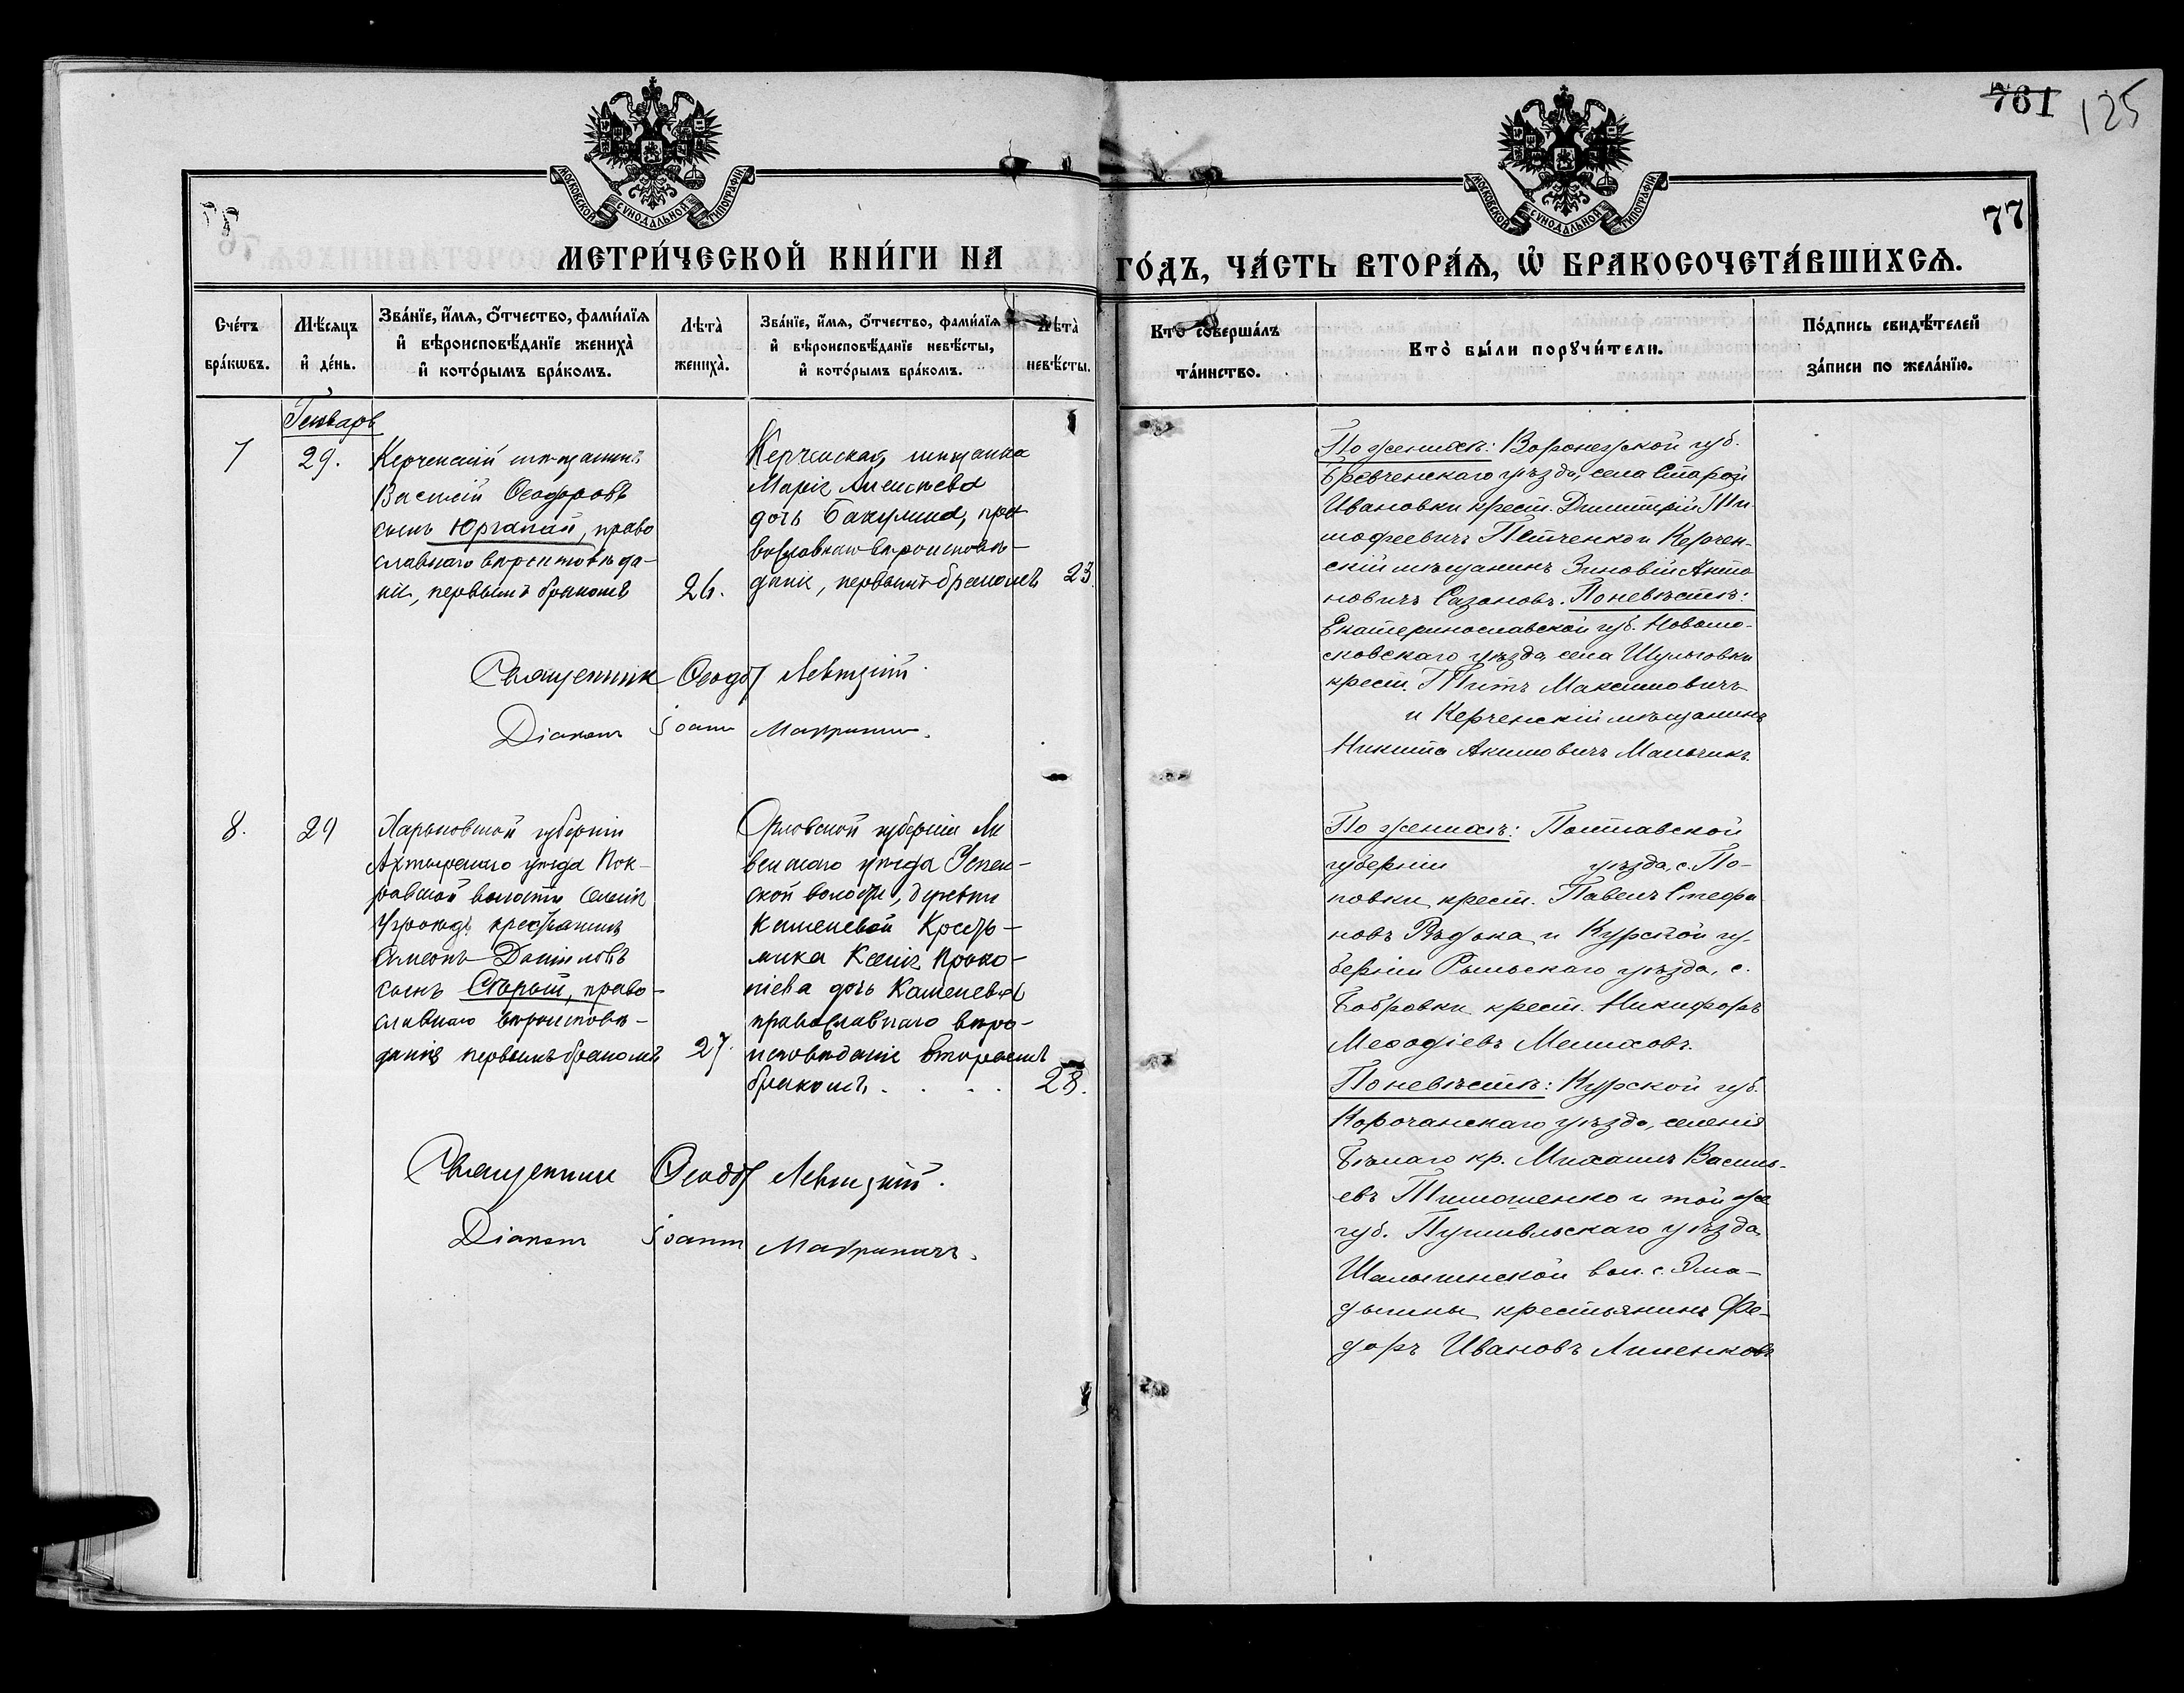 761 125
МОСКОВСКОЙ СѴНОДАЛЬНОЙ ТИПОГРАФІИ
МОСКОВСКОЙ СѴНОДАЛЬНОЙ ТИПОГРАФІИ
77
МЕТРИ́ЧЕСКОЙ КНИ́ГИ НА
ГО́ДЪ, ЧА́СТЬ ВТОРА́Ѧ, Ѡ҆ БРАКОСОЧЕТА́ВШИХСѦ.
Сче́тъ
бра́кѡвъ.
Мѣ́сѧцъ
и҆ де́нь.
Зва́нїе, и҆́мѧ, ѻ҆́тчество, фами́лїѧ
и҆ вѣроисповѣ́данїе жениха̀
и҆ кото́рымъ бра́комъ.
Лѣта̀
жениха̀.
Зва́нїе, и҆́мѧ, ѻ҆́тчество, фами́лїѧ
и҆ вѣроисповѣ́данїе невѣ́сты,
и҆ кото́рымъ бра́комъ.
Лѣта̀
невѣ́сты.
Кто̀ соверша́лъ
та́инство.
Кто̀ бы́ли порꙋчи́тели.
По́дпись свидѣ́телей
за́писи по жела́нїю.
Генварь
7
29.
Керченскій мѣщанинъ
Василій Ѳеодоровъ
сынъ Юргапай, право
славнаго вѣроисповѣда-
нія, первымъ бракомъ
26.
Керченская мѣщанка
Марія Алексѣева
дочь Бакулина, пра
вославнаго вѣроисповѣ-
данія, первымъ бракомъ
23.
По женихѣ: Воронежской губ.
уѣзда, села Старой
Ивановки крест. Димитрій Ти-
мофеевичъ Петченко и Керчен-
скій мѣщанинъ Зиновій Анто
новичъ Сазоновъ. По невѣстѣ:
Екатеринославской губ. Новомо-
сковскаго уѣзда, села Шульговки
крест. Титъ Максимовичъ
и Керченскій мѣщанинъ
Никита Акимовичъ Мальчикъ.
Священникъ Ѳеодоръ Левицкій.
Діаконъ Іоаннъ
8.
29
Харьковской губерніи
Ахтырскаго уѣзда Пок-
ровской волости селенія
крестьянинъ
Симеонъ Даніиловъ
сынъ Старый, право-
славнаго вѣроисповѣ-
данія первымъ бракомъ
27.
Орловской губерніи Ли
венскаго уѣзда Успен-
ской волости, деревни
Каменевой Кресть-
янка Ксенія Проко-
піева дочь Каменева
православнаго вѣро-
исповѣданія вторымъ
бракомъ. . . . .
28.
По женихѣ: Полтавской
губерніи уѣзда, с. По-
повки крест. Павелъ Стефа-
новъ Рѣдька и Курской гу-
берніи Рыльскаго уѣзда, с.
Бобровки крест. Никифоръ
Меѳодіевъ Мелиховъ.
По невѣстѣ: Курской губ.
Корочанскаго уѣзда, селенія
Бѣлаго кр. Михаилъ Василь-
евъ Тимошенко и той же
губ. Путивльскаго уѣзда
Шалыгинской вол. с. Эма-
дыкины крестьянинъ Фе-
доръ Ивановъ
Священникъ Ѳеодоръ Левицкій.
Діаконъ Іоаннъ